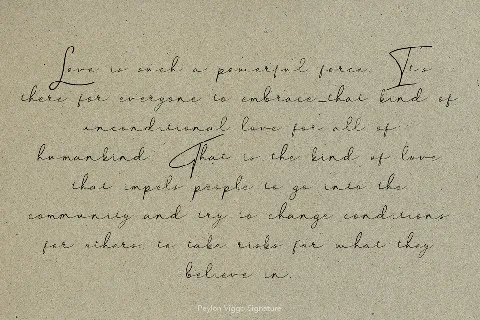 Love is such a powerful force. It's
there for everyone to embrace-that kind of
unconditional love for all of
humankind. That is the kind of love
that impels people to go into the
community and try to change conditions
for others, to take risks for what they
believe in.
Peyton Viggo Signature